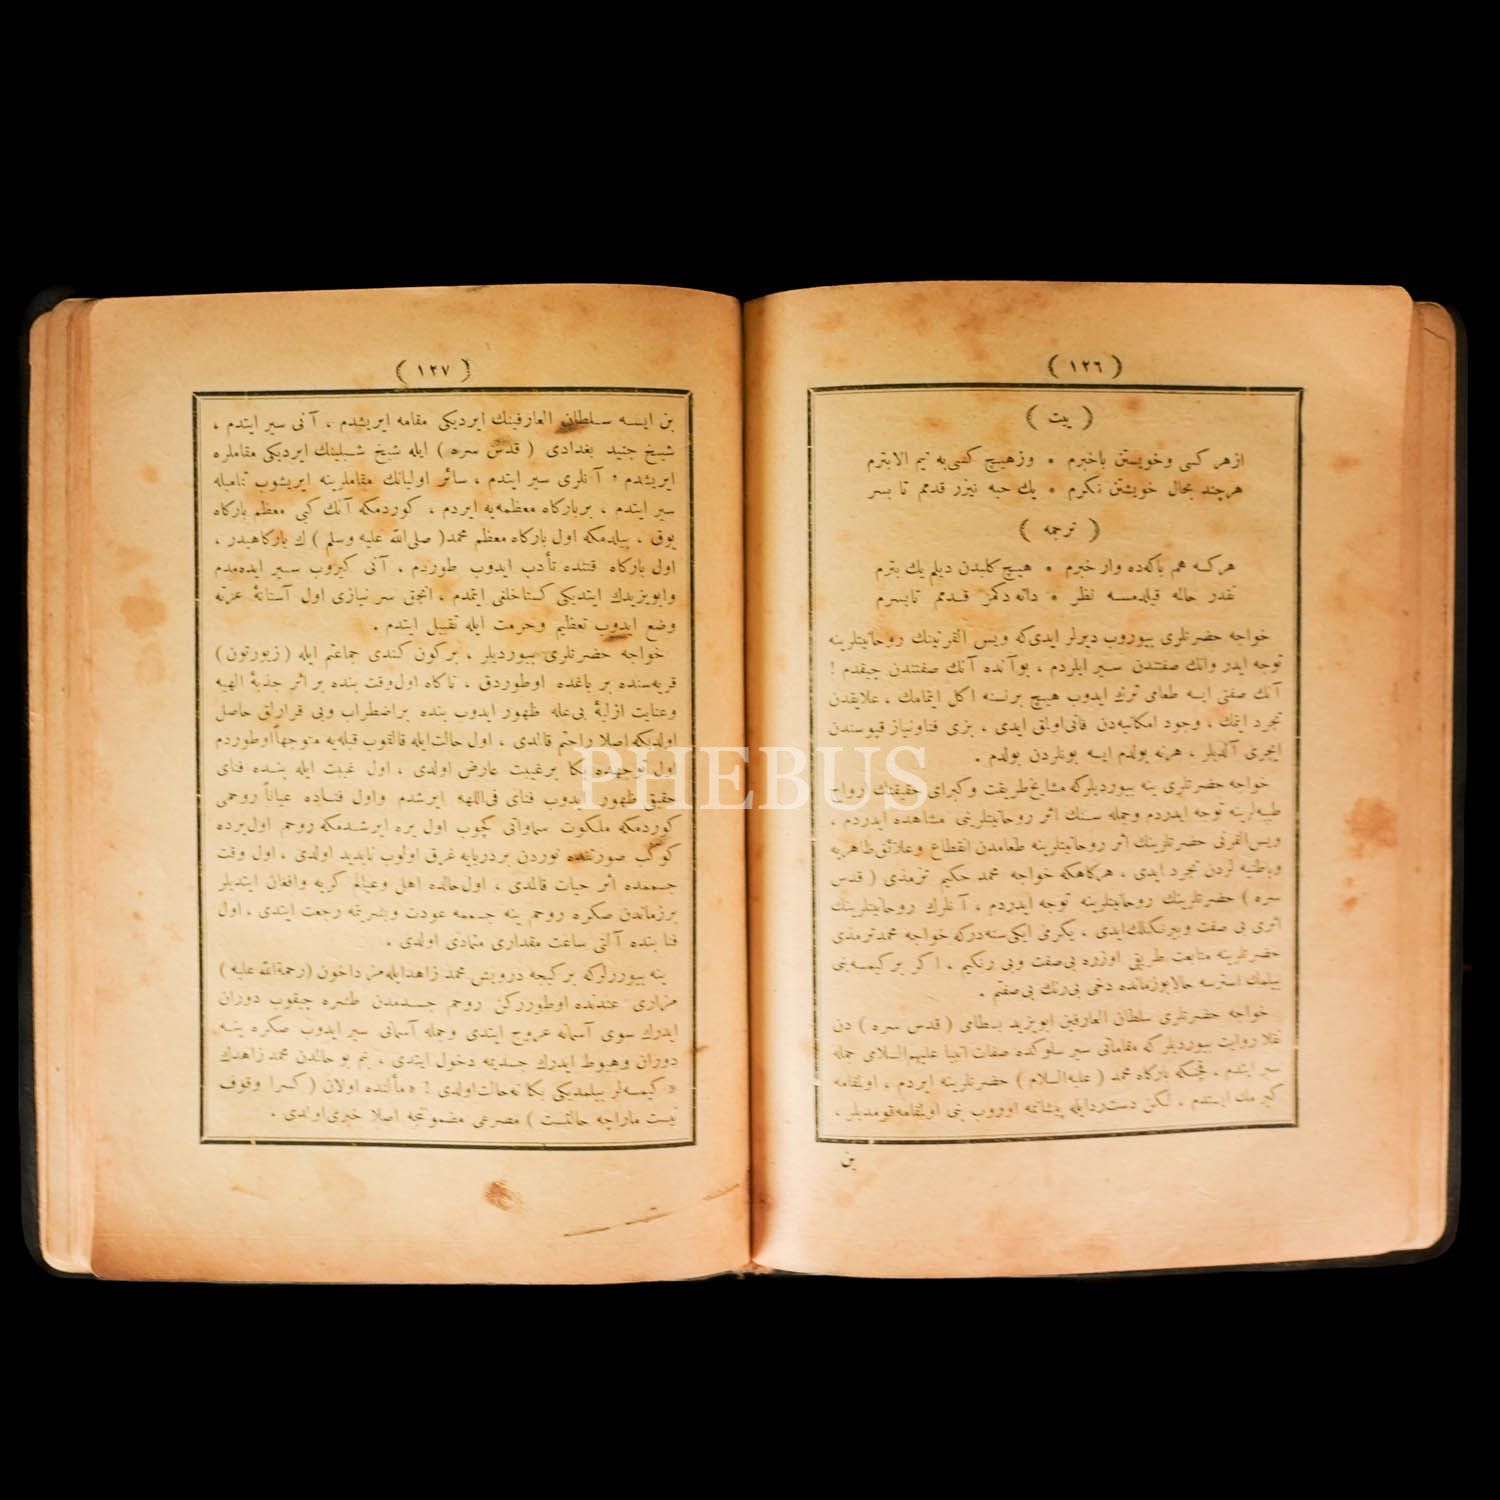 ( ١٢٦ )
( بيت )
ازهر كسى وخويشتن باخبرم * وزهيچ كسى به نيم الابترم
هرچند بحال خويشتن نكرم * يك حبه نيزر قدمم تا بسر
( ترجمه )
هركسه هم باكه‌ده وار خبرم * هيچ كلبدن ديلم يك بترم
نقدر حاله قيلدمسه نظر * دانه دكمز قدمم تابسرم
خواجه حضرتلرى بيوروب ديرلر ايدى‌كه ويس القرنينك روحانيتلرينه
توجه ايدر وانك صفتندن سير ايلردم ، بوآنده آنك صفتندن چيقدم !
آنك صفتى ايسه طعامى ترك ايدوب هيچ برنسنه اكل ايتمامك ، علايقدن
تجرد ايتمك ، وجود امكانيه‌دن فانى‌اولق ايدى ، بزى فناونياز قپوسندن
ايچرى آلديلر ، هرنه بولدم ايسه بونلردن بولدم .
خواجه حضرتلرى ينه بيورديلركه مشايخ طريقت وكبراى حقيقتك رواح
طيبه‌لرينه توجه ايدردم وجمله سنك اثر روحانيتلرينى مشاهده ايدردم ،
ويس‌القرنى حضرتلرينك اثر روحانيتلرينه طعامدن انقطاع وعلائق ظاهريه
وباطنيه لردن تجرد ايدى ، هركاهكه خواجه محمد حكيم ترمذى ( قدس
سره ) حضرتلرينك روحانيتلرينه توجه ايدردم ، آنلرك روحانيتلرينك
اثرى بى صفت وبيرنكلك‌ايدى ، يكرمى ايكى‌سنه‌دركه خواجه محمدترمذى
حضرتلرينه متابعت طريقى اوزره بى‌صفت وبى رنكيم ، اكر بر كيمسه‌بنى
بيلمك استرسه حالابوزمانده دخى بى‌رنك بى‌صفتم .
خواجه حضرتلرى سلطان العارفين ابويزيد بسطامى ( قدس سره ) دن
نقلا روايت بيورديلر كه مقاماتى سير سلوكده صفات انبيا عليهم‌السلامى جمله
سير ايتدم ، چونكه باركاه محمد ( عليه‌السلام ) حضرتلرينه ايردم ، اولمقامه
كيرمك ايستدم ، لكن دست‌ردايله پيشانمه اوروب بنى اولمقامه قومديلر ،
بن
( ١٢٧ )
بن ايسه سلطان العارفينك ايرديكى مقامه ايريشدم ، آنى سير ايتدم ،
شيخ جنيد بغدادى ( قدس سره ) ايله شيخ شبلينك ايرديكى مقاملره
ايريشدم ، آنلرى سير ايتدم ، سائر اوليانك مقاملرينه ايريشوب تماميله
سير ايتدم ، برباركاه معظمه‌يه ايردم ، كوردمكه آنك كبى معظم باركاه
يوق ، بيلدمكه اول باركاه معظم محمد ( صلى‌الله عليه وسلم ) ك باركاهيدر ،
اول باركاه قتنده تأدب ايدوب طوردم ، آنى كيروب سير ايده‌مدم
وابويزيدك ايتديكى كستاخلغى ايتمدم ، انجق سر نيازى اول آستانهٔ عزته
وضع ايدوب تعظيم وحرمت ايله تقبيل ايتدم .
خواجه حضرتلرى بيورديلر ، بركون كندى جماعتم ايله ( زيورتون )
قريه‌سنده بر باغده اوطوردق ، ناكاه اول‌وقت بنده بر اثر جذبهٔ الهيه
وعنايت ازليهٔ بى‌عله ظهور ايدوب بنده براضطراب وبى قرارلق حاصل
اولديكه اصلا راحتم قالمدى ، اول حالت‌ايله قالقوب قبله‌يه متوجها اوطوردم
اول توجهده بكا برغيبت عارض اولدى ، اول غيبت ايله بنده فناى
حقيقى ظهور ايدوب فناى فى‌اللهه ايرشدم واول فناده عيانا روحمى
كوردمكه ملكوت سماواتى كچوب اول يره ايرشدمكه روحم اول‌يرده
كوكب صورتنده نوردن بردريايه غرق اولوب ناپديد اولدى ، اول وقت
جسمده اثر حيات قالمدى ، اول‌حالده اهل وعيالم كريه وافغان ايتديلر
برزماندن صكره روحم ينه جسمه عودت وبشريتمه رجعت ايتدى ، اول
فنا بنده آلتى ساعت مقدارى متمادى اولدى .
ينه بيوررلركه بركيجه درويش محمد زاهدايله مزداخون (رحمةالله عليه )
مزارى عندنده اوطورركن روحم جسدمدن طشره چيقوب دوران
ايدرك سوى آسمانه عروج ايتدى وجمله آسمانى سير ايدوب صكره ينه
دوران وهبوط ايدرك جسديمه دخول ايتدى ، بنم بو حالدن محمد زاهدك
« كيمسه‌لر بيلمديكى بكا نه‌حالت‌اولدى ! » مألنده اولان ( كسرا وقوف
نيست ماراچه حالتست ) مصرعى مضمونجه اصلا خبرى‌اولمدى .
PHEBUS